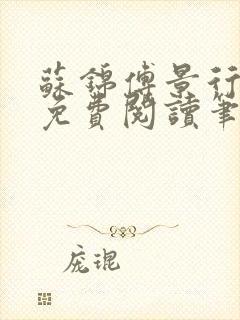 蘇錦傅景行
免費閱讀筆
庞琨